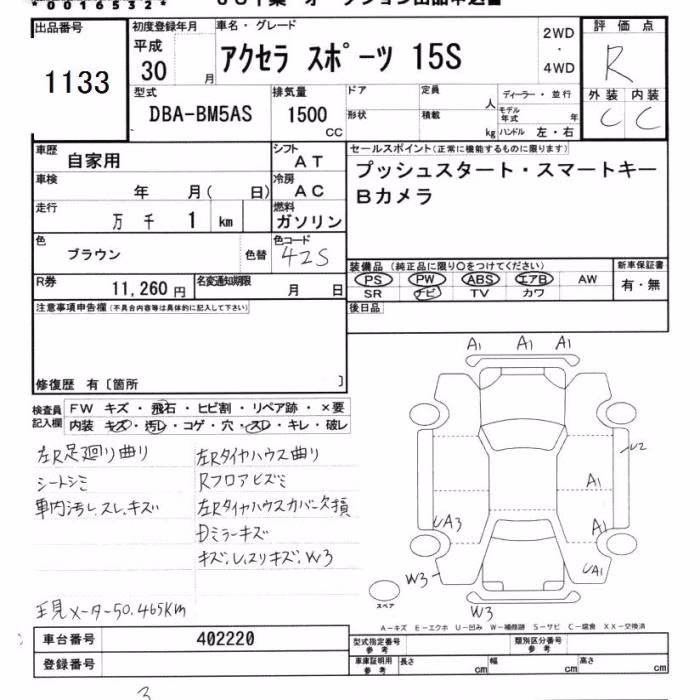 *0016532*
出品番号
1133
初度登録年月
平成
30 月
車名・グレード
アクセラ スポーツ 15S
2WD
・
4WD
評価点
R
外装 内装
C C
型式
DBA-BM5AS
排気量
1500
CC
ドア
形状
定員
人
積載
kg
ディーラー・並行
モデル年式 年
ハンドル 左・右
車歴
自家用
シフト
AT
車検
年 月( 日)
冷房
AC
走行
万 千 1 km
燃料
ガソリン
色
ブラウン
色替
色コード
42S
R券
11,260 円
名変通知期限
月 日
セールスポイント(正常に機能するものに限ります)
プッシュスタート・スマートキー
Bカメラ
装備品 (純正品に限り○をつけてください)
PS PW ABS エアB AW
SR ナビ TV カワ
新車保証書
有・無
後日品
注意事項申告欄(不具合内容等は具体的に記入して下さい)
修復歴 有〔箇所 〕
検査員
記入欄
FW キズ・飛石・ヒビ割・リペア跡・×要
内装 キズ・汚レ・コゲ・穴・スレ・キレ・破レ
左R足廻り曲り
シートシミ
車内汚レ、スレ、キズ
左Rタイヤハウス曲り
Rフロアヒズミ
左Rタイヤハウスカバー欠損
Dミラーキズ
キズ、レ、スリキズ、W3
現メーター50,465Km
A1 A1 A1
U2
A1
UA3
A1
UA1
W3
W3
スペア
A-キズ E-エクボ U-凹み W-補修跡 S-サビ C-腐食 XX-交換済
車台番号
402220
登録番号
型式指定番号
参考
類別区分番号
参考
車庫証明用
参考
長さ cm
幅 cm
高さ cm
3